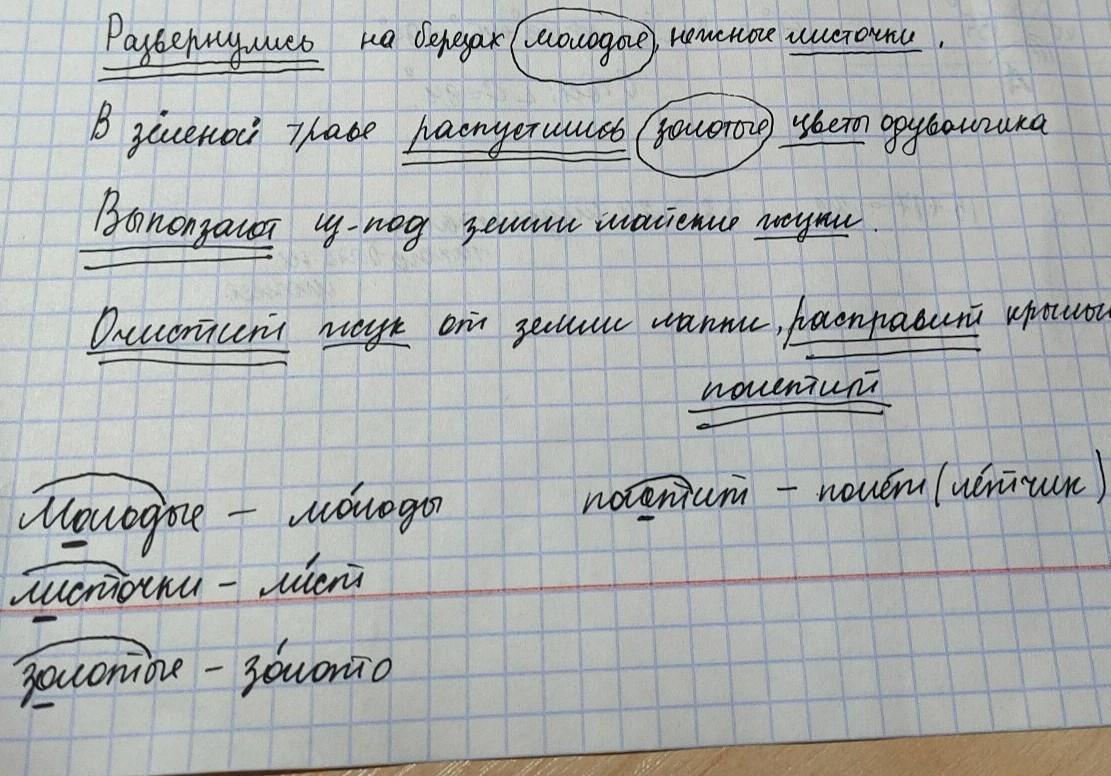 Развернулись на березах молодые, нежные листочки.
В зеленой траве распустились золотые цветы одуванчика
Выползают из-под земли майские жуки.
Очистит жук от земли лапки, расправит крылья
полетит
Молодые – мо́лоды полетит – полёт (лётчик)
листочки – ли́ст
золотые – зо́лото